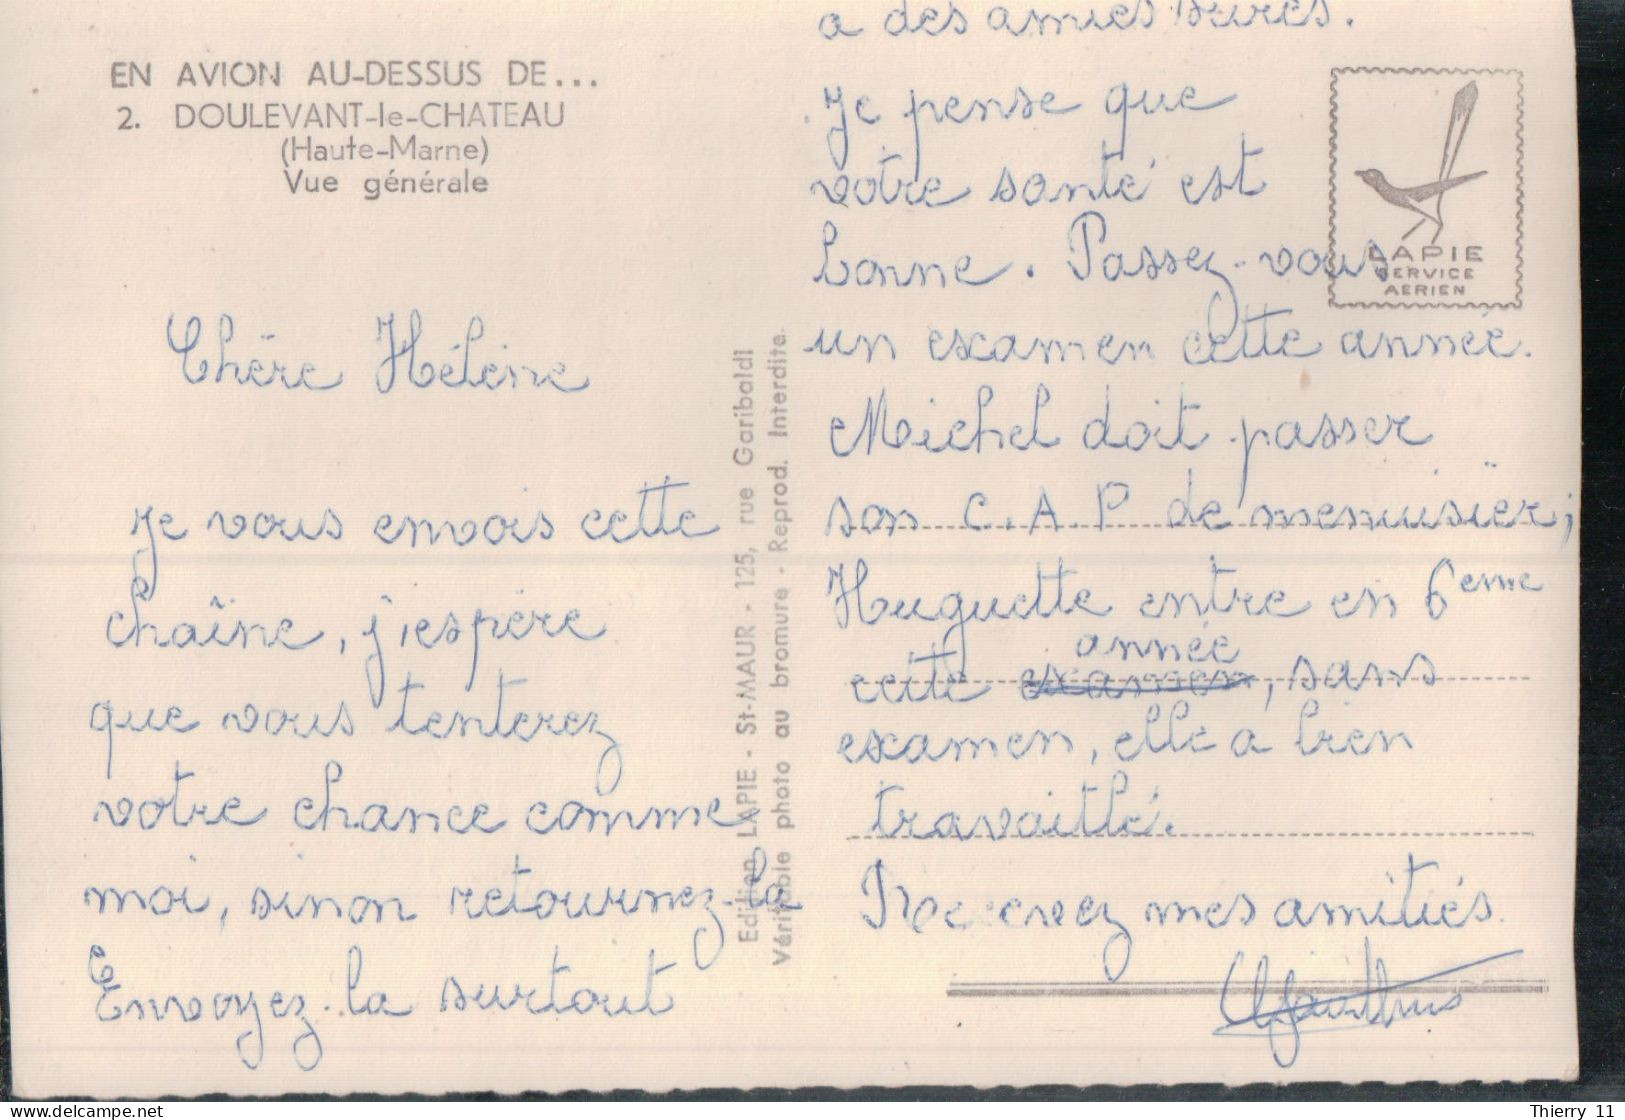 EN AVION AU-DESSUS DE...
2. DOULEVANT-le-CHATEAU
(Haute-Marne)
Vue générale
Chère Hélène
Je vous envois cette
chaïne, j'espère
que vous tenterez
votre chance comme
moi, sinon retournez-la
Envoyez-la surtout
Edition LAPIE - St-MAUR - 125, rue Garibaldi
Véritable photo au bromure - Reprod. Interdite.
a des amies sûres.
Je pense que
votre santé est
bonne. Passez-vous
un examen cette année.
Michel doit passer
son C.A.P de menuisier,
Huguette entre en 6eme
année
cette examen, sans
examen, elle a bien
travaillé.
Recevez mes amitiés.
LAPIE
SERVICE
AERIEN
Thierry 11